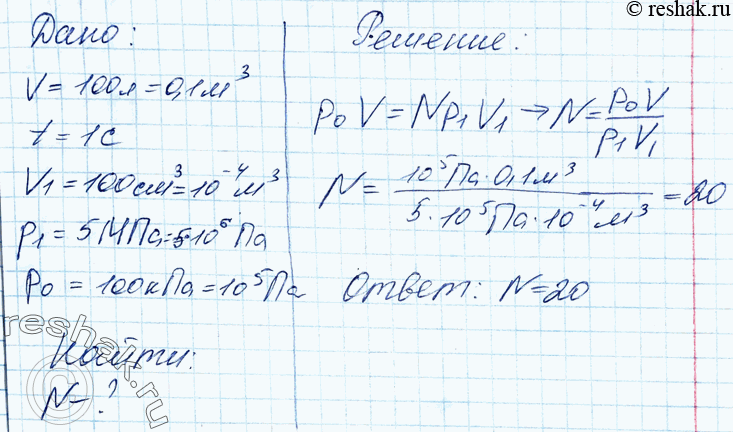 © reshak.ru
Дано:
V = 100л = 0,1 м³
t = 1с
V₁ = 100 см³ = 10⁻⁴ м³
p₁ = 5 МПа = 5·10⁶ Па
p₀ = 100 кПа = 10⁵ Па
Найти:
N - ?
Решение:
p₀ V = N p₁ V₁ → N = p₀ V / p₁ V₁
N = 10⁵ Па · 0,1 м³ / 5 · 10⁵ Па · 10⁻⁴ м³ = 20
Ответ: N = 20
reshak.ru